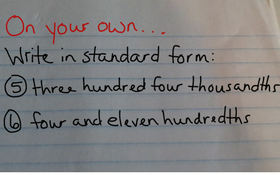 On your own...
Write in standard form:
⑤ three hundred four thousandths
⑥ four and eleven hundredths